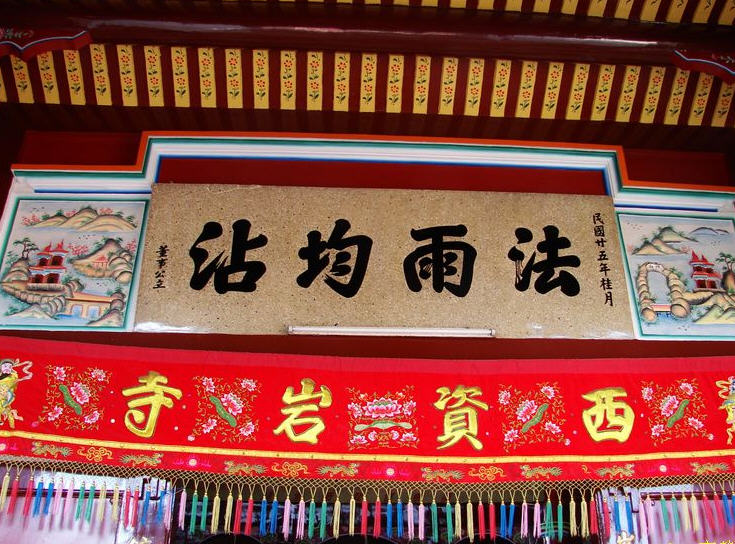 民國廿五年桂月
法雨均沾
董事公立
西資岩寺